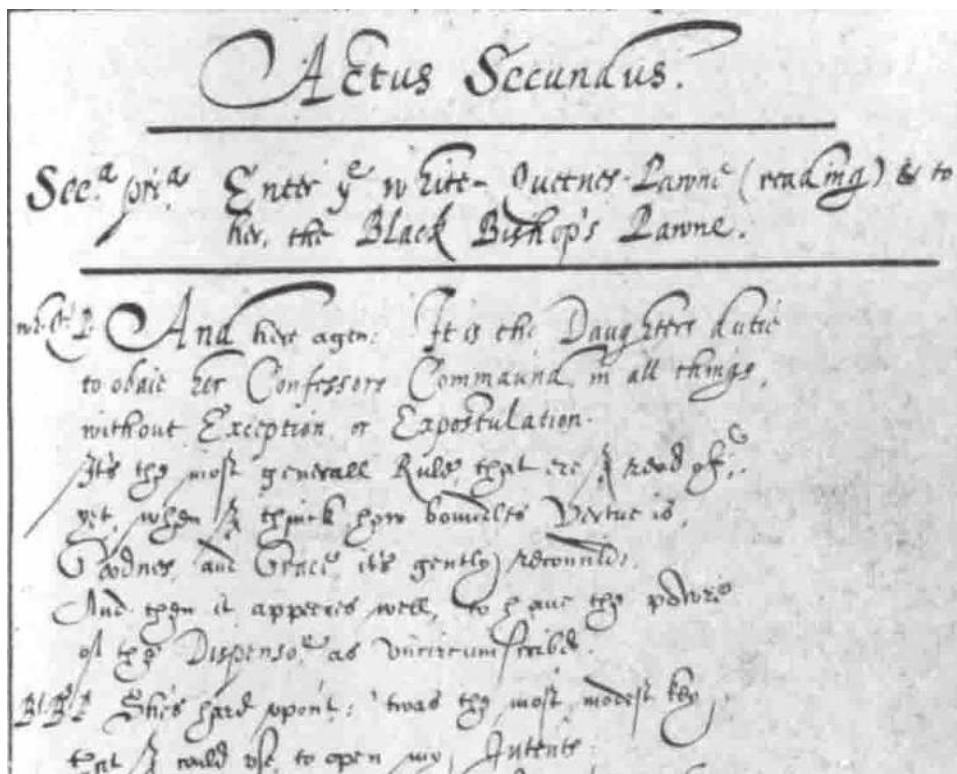 Actus Secundus.
Scea. pria. Enter ye white-Queenes-Pawne (reading) & to
her, the Black Bishop's Pawne.
wh. Q. P. And here agen: It is the Daughters dutie
to obaie her Confessors Commaund in all things,
without Exception, or Expostulation.
It's the most generall Rule, that ere I read of;
yet, when I think how boundles Vertue is,
Goodnes, and Grace, it's gently reconcild:
And then it appeeres well, to haue the powre
of the Dispensor, as vncircumscribd.
Bl. B. P. She's hard vpon't: 'twas the most modest key,
that I could vse, to open my Intents: